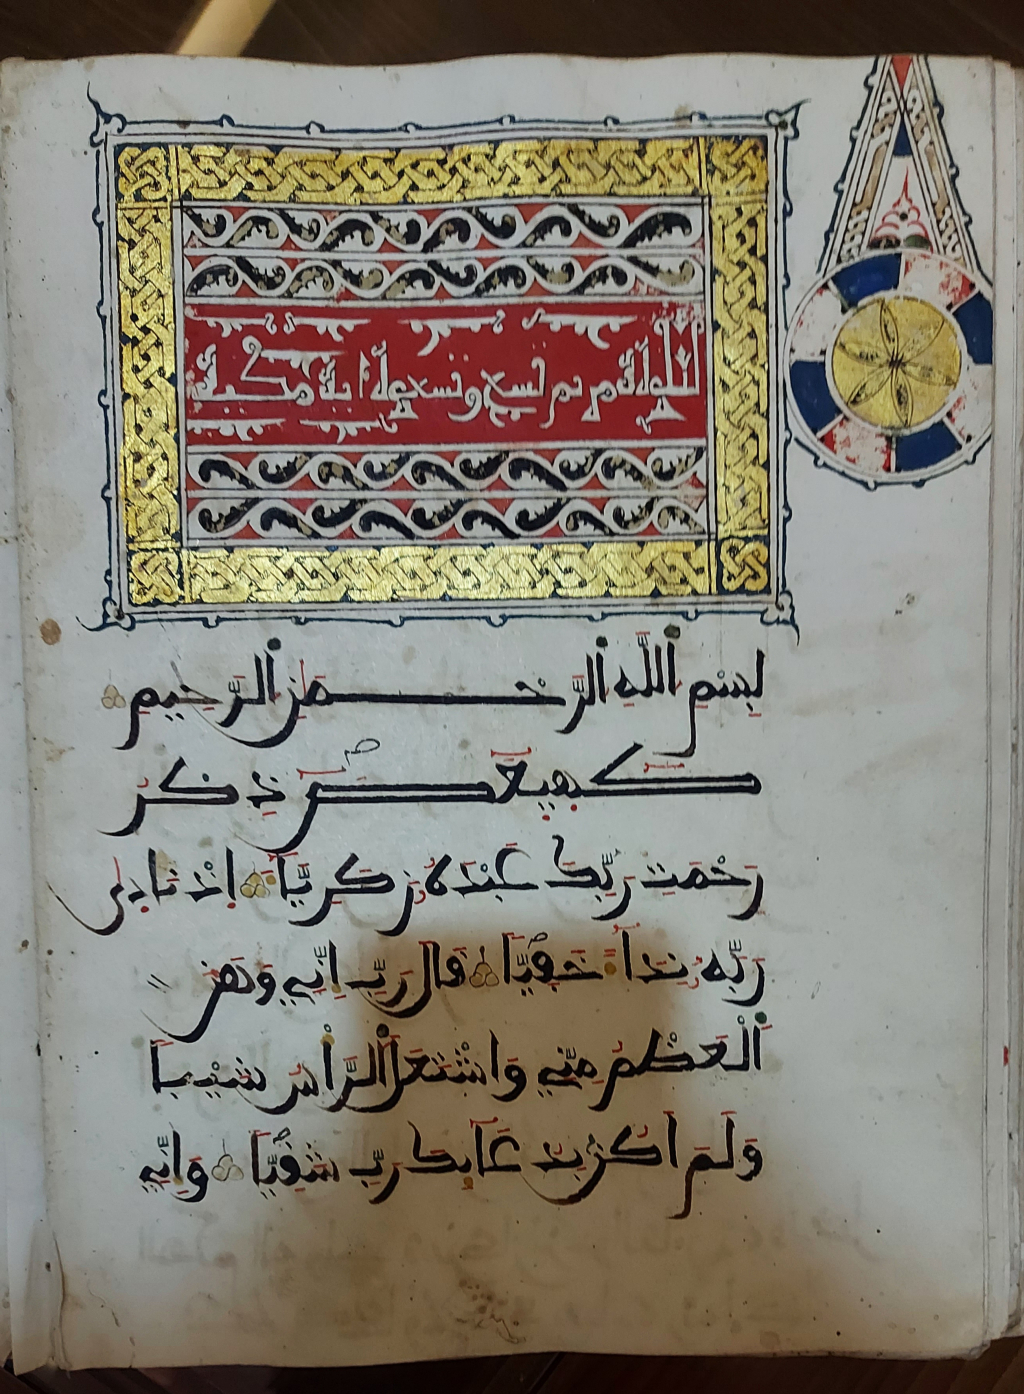 سورة مريم تسع وتسعون اية مكية
بِسْمِ اللَّهِ الرَّحْمَٰنِ الرَّحِيمِ
كهيعص ذِكْرُ
رَحْمَتِ رَبِّكَ عَبْدَهُ زَكَرِيَّا إِذْ نَادَىٰ
رَبَّهُ نِدَاءً خَفِيًّا قَالَ رَبِّ إِنِّي وَهَنَ
الْعَظْمُ مِنِّي وَاشْتَعَلَ الرَّأْسُ شَيْبًا
وَلَمْ أَكُنْ بِدُعَائِكَ رَبِّ شَقِيًّا وَإِنِّي